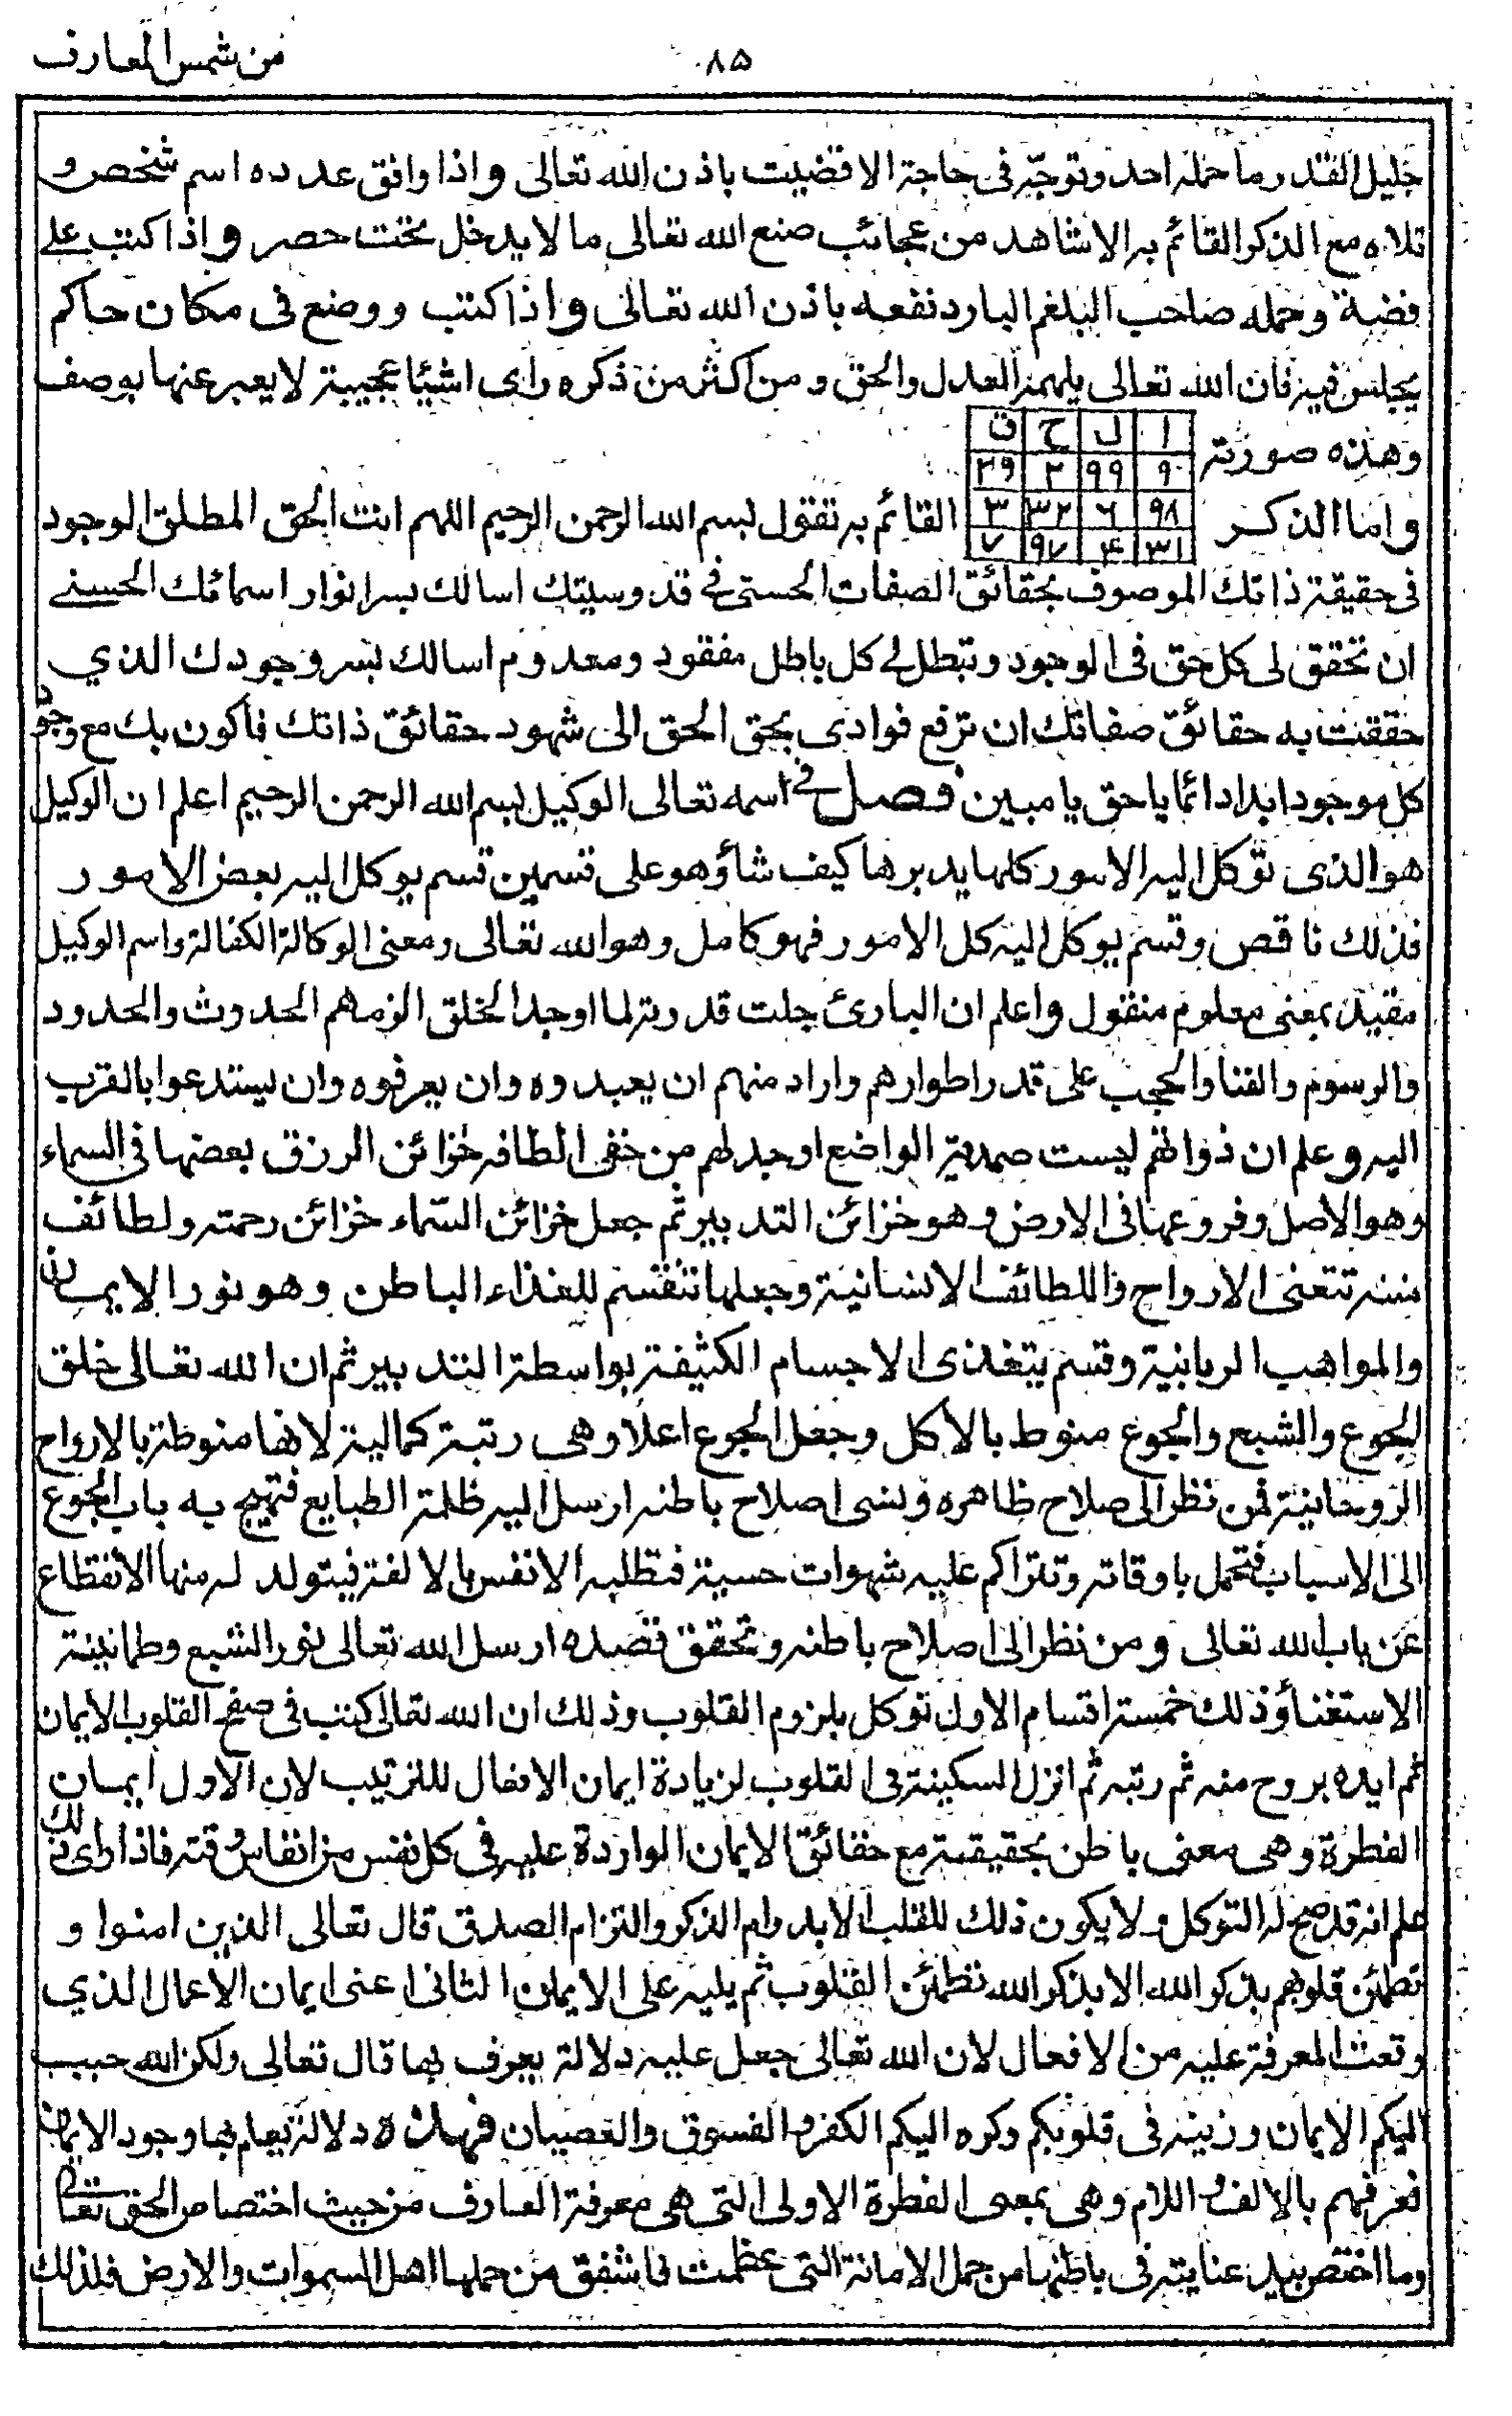 من شمس المعارف
٨٥
جليل القدر ما حمله احد وتوجّه فى حاجة الا قضيت باذن الله تعالى واذا وافق عدده اسم شخص و
تلاه مع الذكر القائم به الا شاهد من عجائب صنع الله تعالى ما لا يدخل تحت حصر واذا كتب على
فضة وحمله صاحب البلغم البارد نفعه باذن الله تعالى واذا كتب ووضع فى مكان حاكم
يجلس فيه فان الله تعالى يلهمه العدل والحق ومن اكثر من ذكره راى اشيئا عجيبة لا يعبر عنها بوصف
وهذه صورته
ا ل ح ق
٩ ٩٩ ٢ ٢٩
٩٨ ٦ ٣٢ ٣
٣١ ۴ ٩٧ ٧
واما الذكر القائم به تقول بسم الله الرحمن الرحيم اللهم انت الحق المطلق الوجود
فى حقيقة ذاتك الموصوف بحقائق الصفات الحستى فى قدوسيتك اسالك بسر انوار اسمائك الحسنى
ان تحقق لى كل حق فى الوجود وتبطل لى كل باطل مفقود ومعدوم اسالك بسر وجودك الذي
حققت به حقائق صفاتك ان ترفع فوادى بحق الحق الى شهود حقائق ذاتك فاكون بك مع وجود
كل موجود ابدا دائما يا حق يا مبين فصل فى اسمه تعالى الوكيل بسم الله الرحمن الرحيم اعلم ان الوكيل
هو الذى توكل اليه الامور كلها يدبرها كيف شاؤ هو على قسمين قسم يوكل اليه بعض الامور
فذلك ناقص وقسم يوكل اليه كل الامور فهو كامل وهو الله تعالى ومعنى الوكالة الكفالة واسم الوكيل
مقيد بمعنى معلوم منقول واعلم ان البارئ جلت قدرته لما اوجد الخلق الزمهم الحدوث والحدود
والرسوم والفنا والحجب على قدر اطوارهم واراد منهم ان يعبدوه وان يعرفوه وان يستدعوا بالقرب
اليه وعلم ان ذواتهم ليست صمدية الواضع اوجد لهم من خفى الطافه خزائن الرزق بعضها فى السماء
وهو الاصل وفروعها فى الارض وهو خزائن التدبير ثم جعل خزائن السّماء خزائن رحمته ولطائف
مننه تتغذى الارواح واللطائف الانسانية وجعلها تنقسم للغذاء الباطن وهو نور الايمان
والمواهب الربانية وقسم يتغذى الاجسام الكثيفة بواسطة التدبير ثم ان الله تعالى خلق
الجوع والشبع والجوع منوط بالاكل وجعل الجوع اعلا وهى رتبة كمالية لانها منوطة بالارواح
الروحانية فمن نظر الى صلاح ظاهره ونسى اصلاح باطنه ارسل اليه ظلمة الطبايع فتهيج به باب الجوع
الى الاسباب فتحمل باوقاته وتتراكم عليه شهوات حسية فتطلبه الانفس بالالفة فيتولد له منها الانقطاع
عن باب الله تعالى ومن نظر الى اصلاح باطنه وتحقق قصده ارسل الله تعالى نور الشبع وطمانينة
الاستغنأ وذلك خمسة اقسام الاول توكل بلزوم القلوب وذلك ان الله تعالى كتب فى صفح القلوب الايمان
ثم ايده بروح منه ثم رتبه ثم انزل السكينة فى القلوب لزيادة ايمان الافعال للترتيب لان الاول ايمان
الفطرة وهى معنى باطن بحقيقة مع حقائق الايمان الواردة عليه فى كل نفس من انفاس وقته فاذا راى ذلك
علم انه قد صح له التوكل ولا يكون ذلك للقلب الا بدوام الذكر والتزام الصدق قال تعالى الذين امنوا و
تطمئن قلوبهم بذكر الله الا بذكر الله تطمئن القلوب ثم يليه على الايمان الثانى اعنى ايمان الاعمال الذي
وقعت المعرفة عليه من الافعال لان الله تعالى جعل عليه دلالة يعرف بها قال تعالى ولكن الله حبب
اليكم الايمان وزينه فى قلوبكم وكره اليكم الكفر والفسوق والعصيان فهذه دلالة يعلم بها وجود الايمان
فعرفهم بالالف واللام وهى بمعنى الفطرة الاولى التى هى معرفة العارف من حيث اختصاص الحق تعالى
وما اختص بيد عنايته فى باطنها من حمل الامانة التى عظمت فاشفق من حملها اهل السموات والارض فلذلك